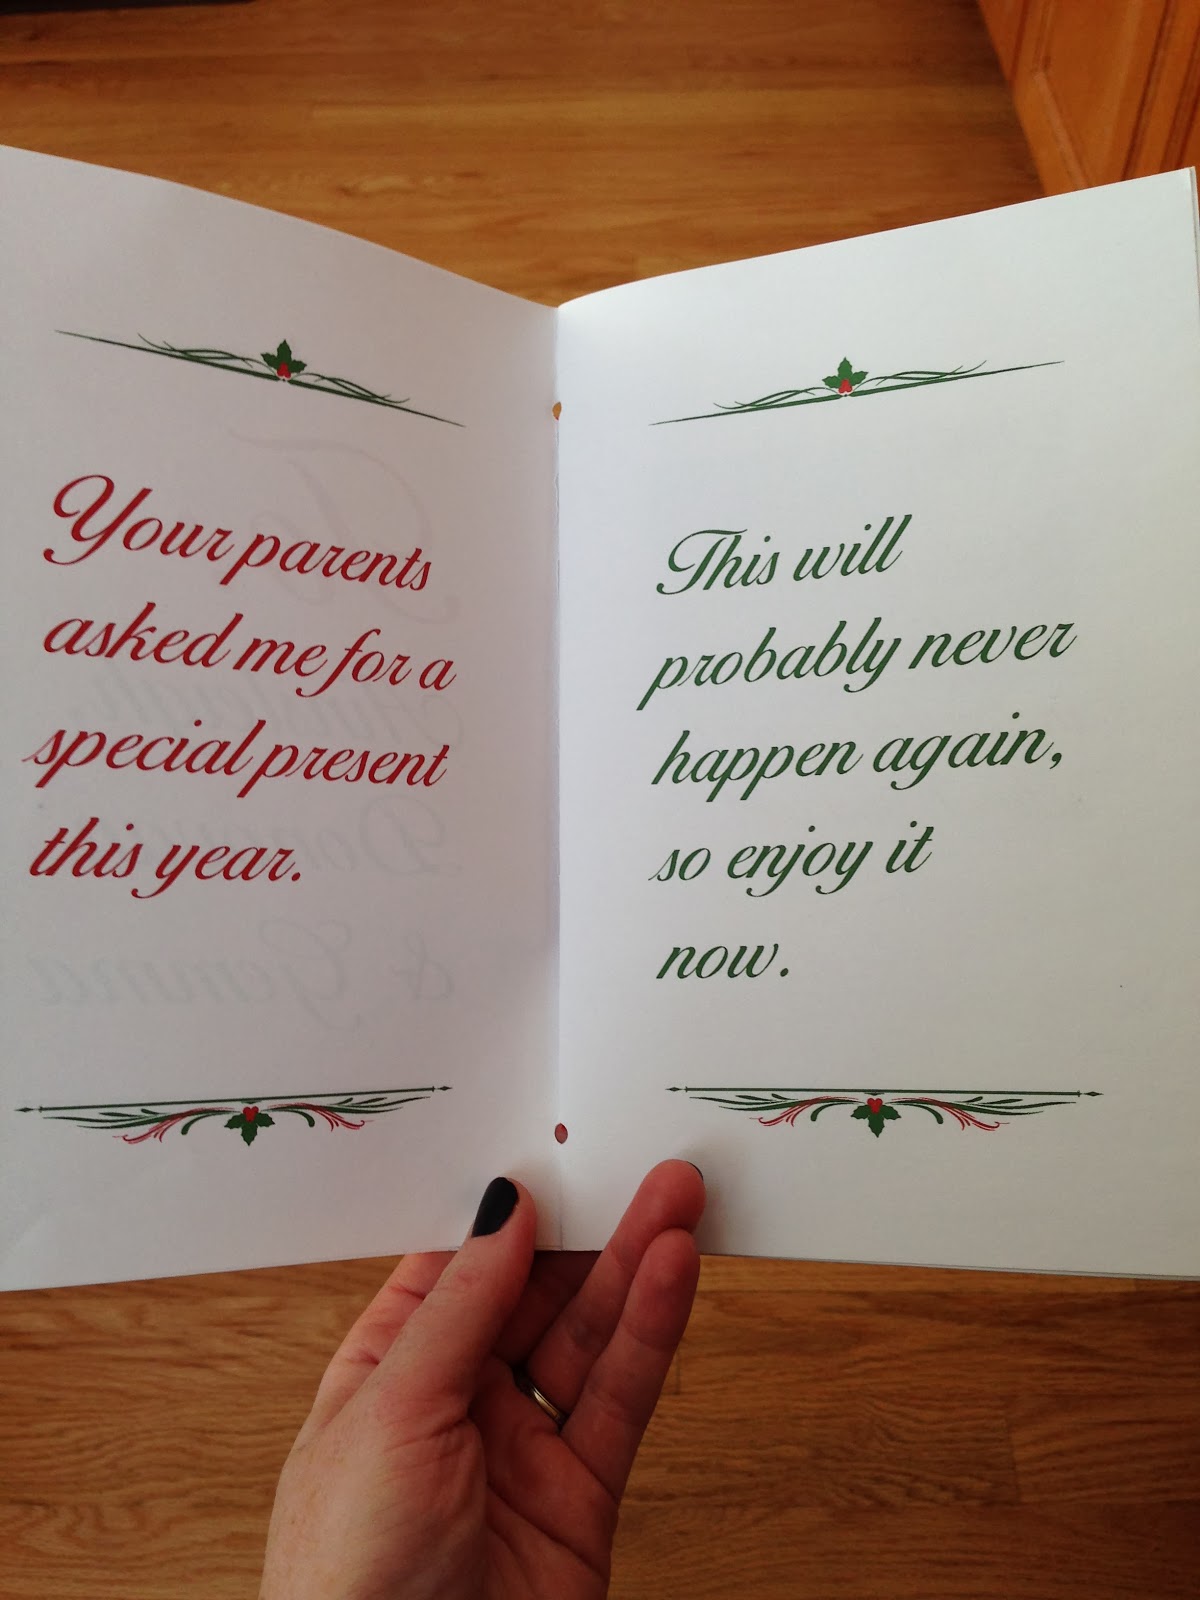 Your parents
asked me for a
special present
this year.
This will
probably never
happen again,
so enjoy it
now.